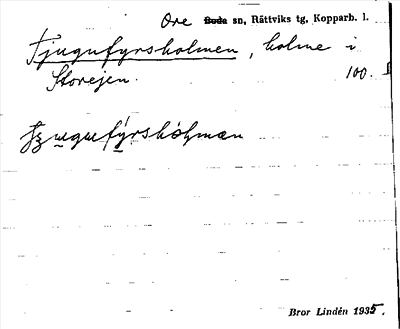 Ore Boda sn, Rättviks tg, Kopparb. l.
Tjugufyrsholmen, holme i
Storejen. 100.
Bror Lindén 1935.